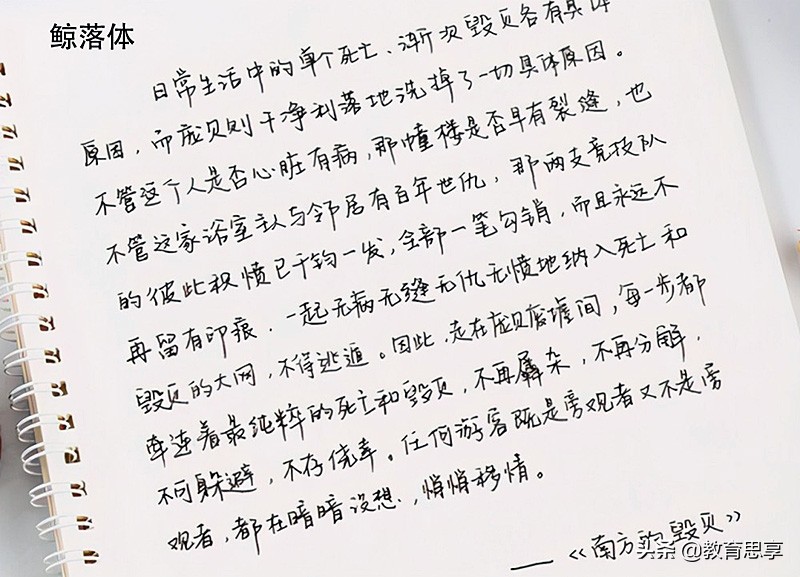 鲸落体
日常生活中的单个死亡、渐次毁灭各有具体
原因，而庞贝则干净利落地洗掉了一切具体原因。
不管这个人是否心脏有病，那幢楼是否早有裂缝，也
不管这家浴室主人与邻居有百年世仇，那两支竞技队
的彼此积愤已千钧一发，全部一笔勾销，而且永远不
再留有印痕．一起无病无缝无仇无愤地纳入死亡和
毁灭的大网，不得逃遁。因此，走在庞贝废墟间，每一步都
牵连着最纯粹的死亡和毁灭，不再羼杂，不再分解，
不可躲避，不存侥幸。任何游客既是旁观者又不是旁
观者，都在暗暗设想，悄悄移情。
——《南方的毁灭》
头条 @教育思享